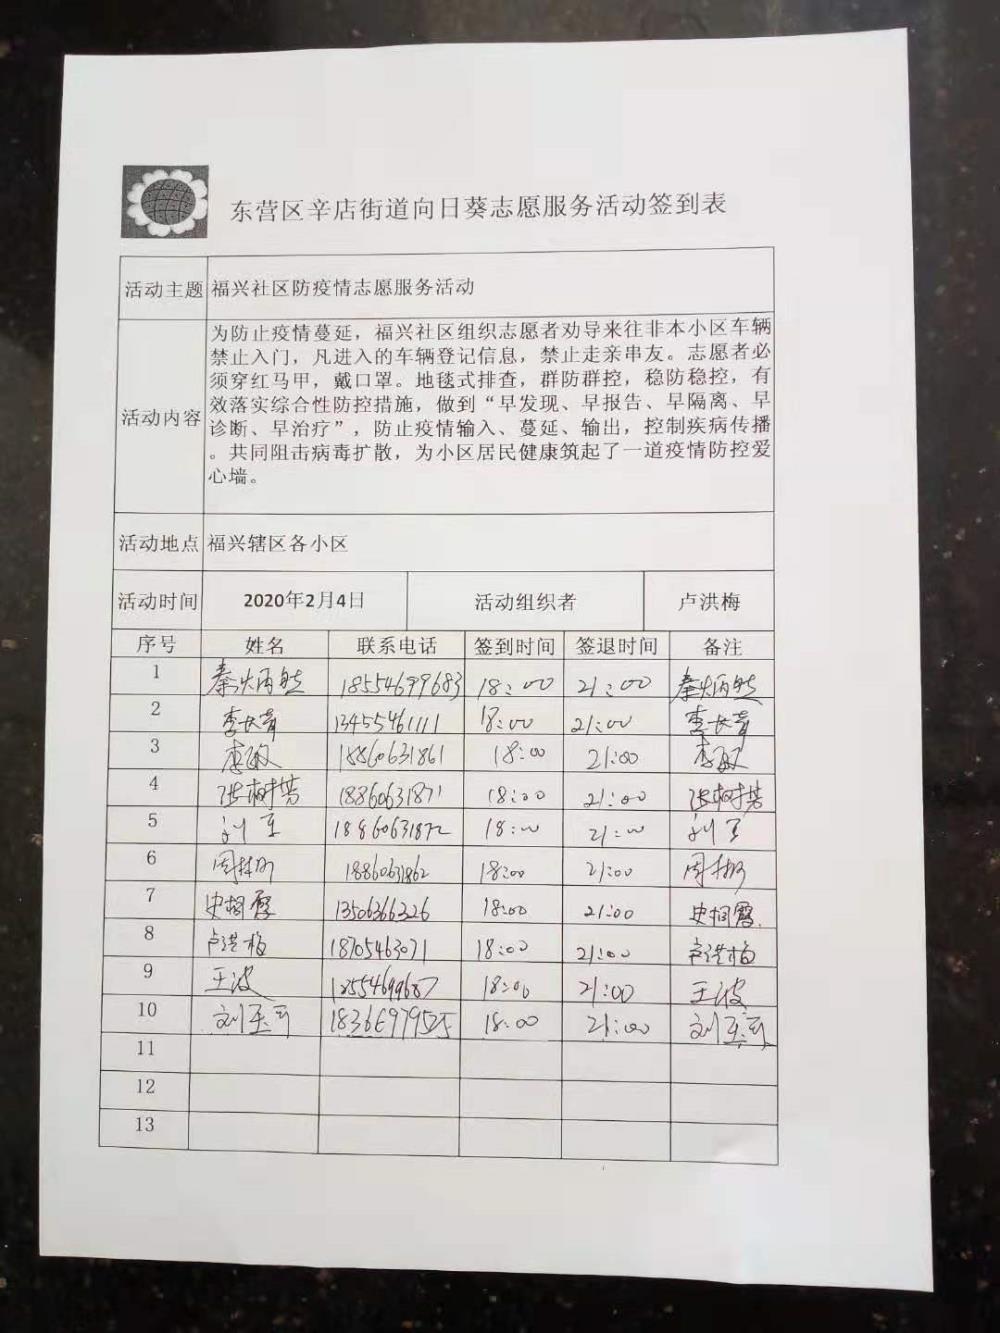 东营区辛店街道向日葵志愿服务活动签到表
活动主题 福兴社区防疫情志愿服务活动
为防止疫情蔓延，福兴社区组织志愿者劝导来往非本小区车辆
禁止入门，凡进入的车辆登记信息，禁止走亲串友。志愿者必
须穿红马甲，戴口罩。地毯式排查，群防群控，稳防稳控，有
效落实综合性防控措施，做到“早发现、早报告、早隔离、早
活动内容
诊断、早治疗”，防止疫情输入、蔓延、输出，控制疾病传播
。共同阻击病毒扩散，为小区居民健康筑起了一道疫情防控爱
心墙。
活动地点 福兴辖区各小区
活动时间 2020年2月4日 活动组织者 卢洪梅
序号 姓名 联系电话 签到时间 签退时间 备注
1 秦炳 18554699683 18:00 21:00 秦炳
2 李长青 13455461111 18:00 21:00 李长青
3 李敏 18860631861 18:00 21:00 李敏
4 张树芳 18860631871 18:00 21:00 张树芳
5 刘军 18860631872 18:00 21:00 刘军
6 周彬 18860631862 18:00 21:00 周彬
7 史相霞 13506366326 18:00 21:00 史相霞
8 卢洪梅 18705463071 18:00 21:00 卢洪梅
9 王波 18:00 21:00 王波
10 刘玉 18366979525 18:00 21:00 刘玉
11
12
13